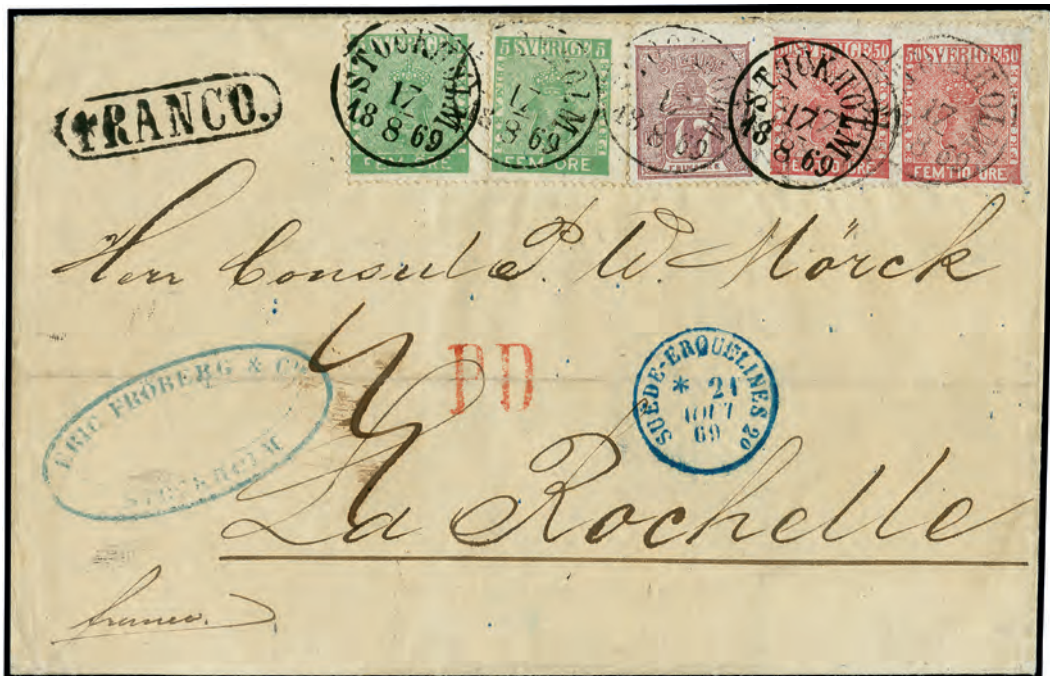 FRANCO.
STOCKHOLM
17
8
1869
SVERIGE
FEM ÖRE
STOCKHOLM
17
8
1869
5 SVERIGE 5
FEM ÖRE
17
STOCKHOLM
17
8
1869
SVERIGE 50
FEMTIO ÖRE
50 SVERIGE 50
FEMTIO ÖRE
Herr Consul P. W. Mörck
PD
SUÈDE-ERQUELINES 2º
* 21
AOUT
69
ERIC FRÖBERG & Cº
STOCKHOLM
La Rochelle
franco.